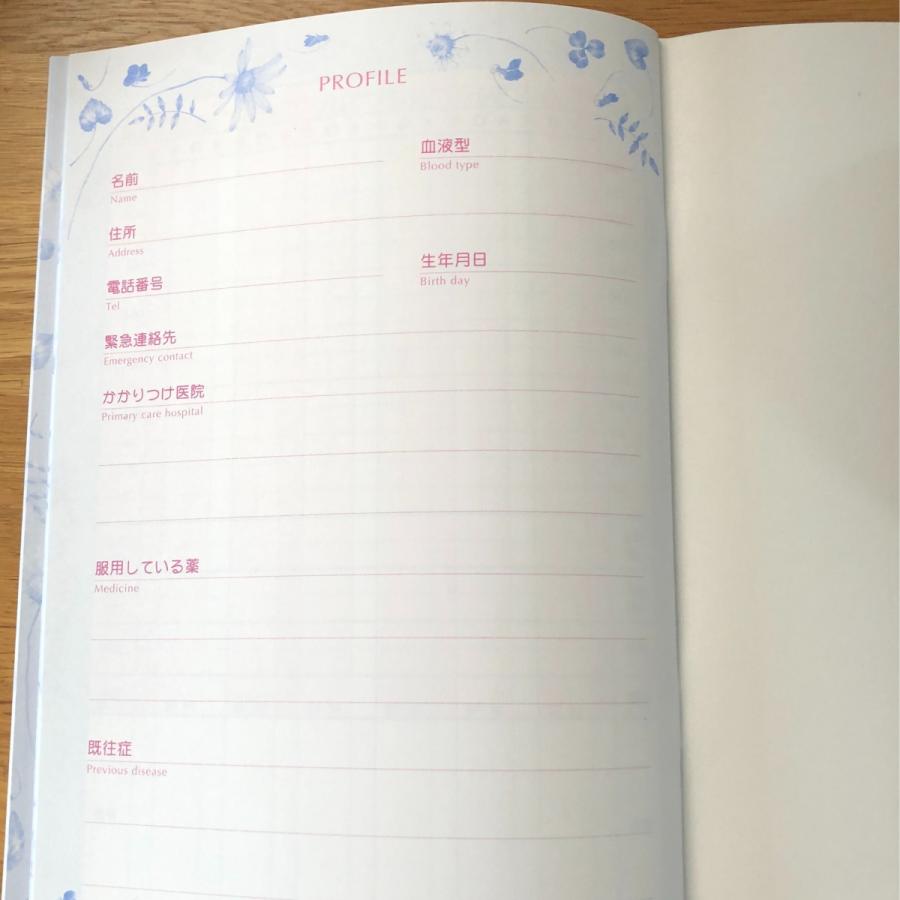 PROFILE
名前
Name
血液型
Blood type
住所
Address
電話番号
Tel
生年月日
Birth day
緊急連絡先
Emergency contact
かかりつけ医院
Primary care hospital
服用している薬
Medicine
既往症
Previous disease